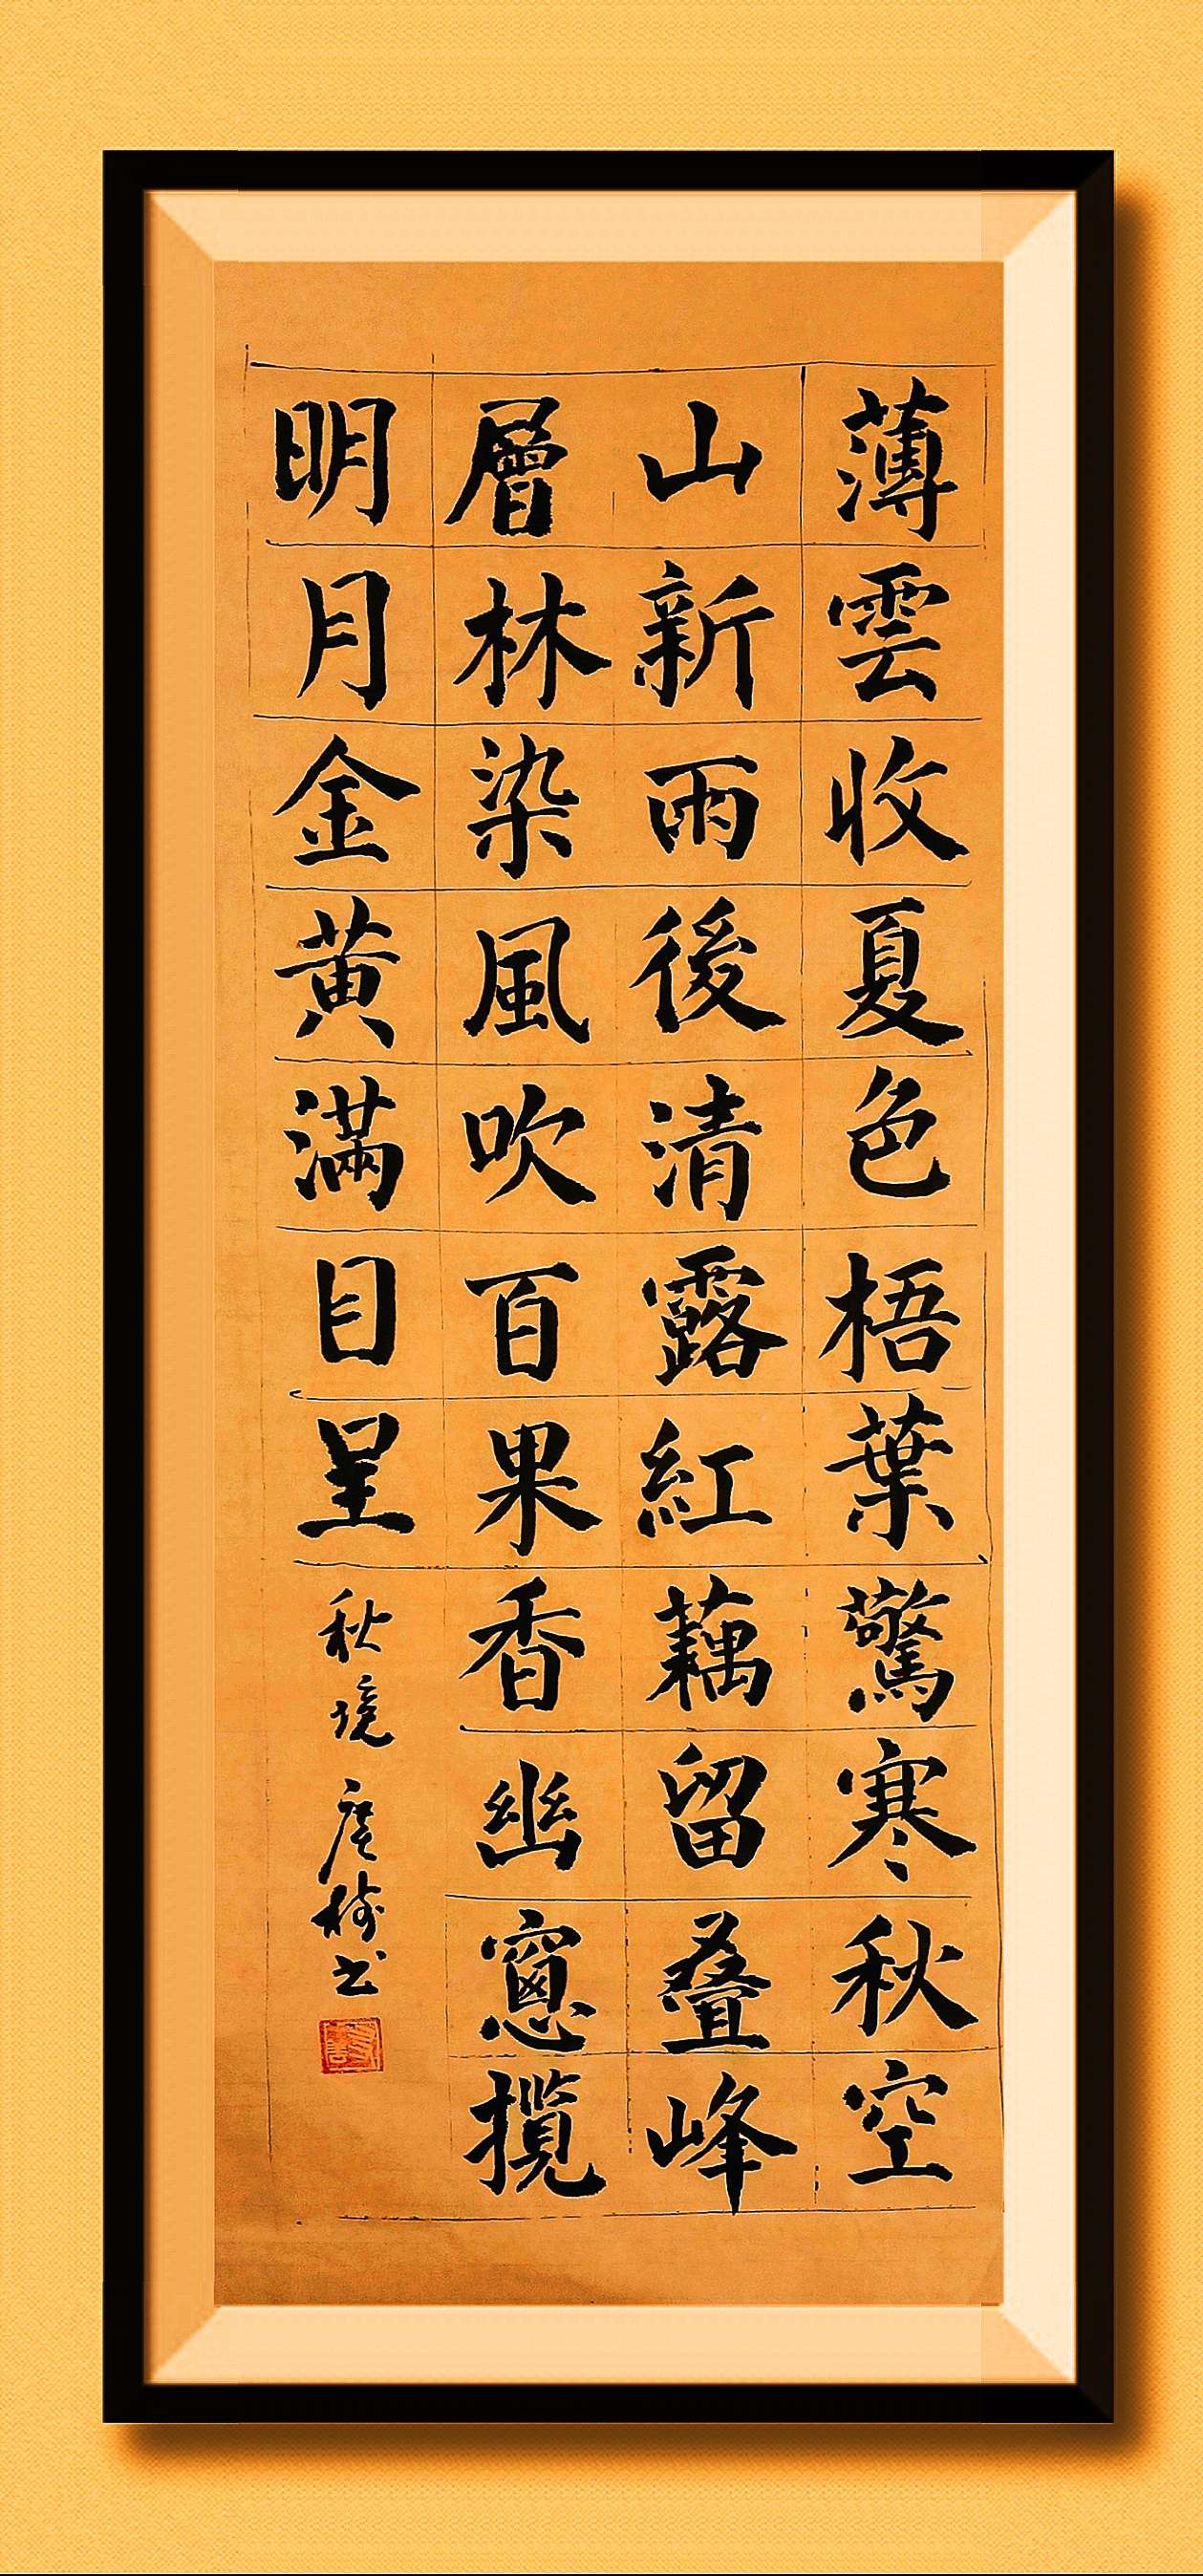 薄雲收夏色梧葉驚寒秋空
山新雨後清露紅藕留叠峰
層林染風吹百果香幽窻攬
明月金黄滿目呈
秋境 樹书